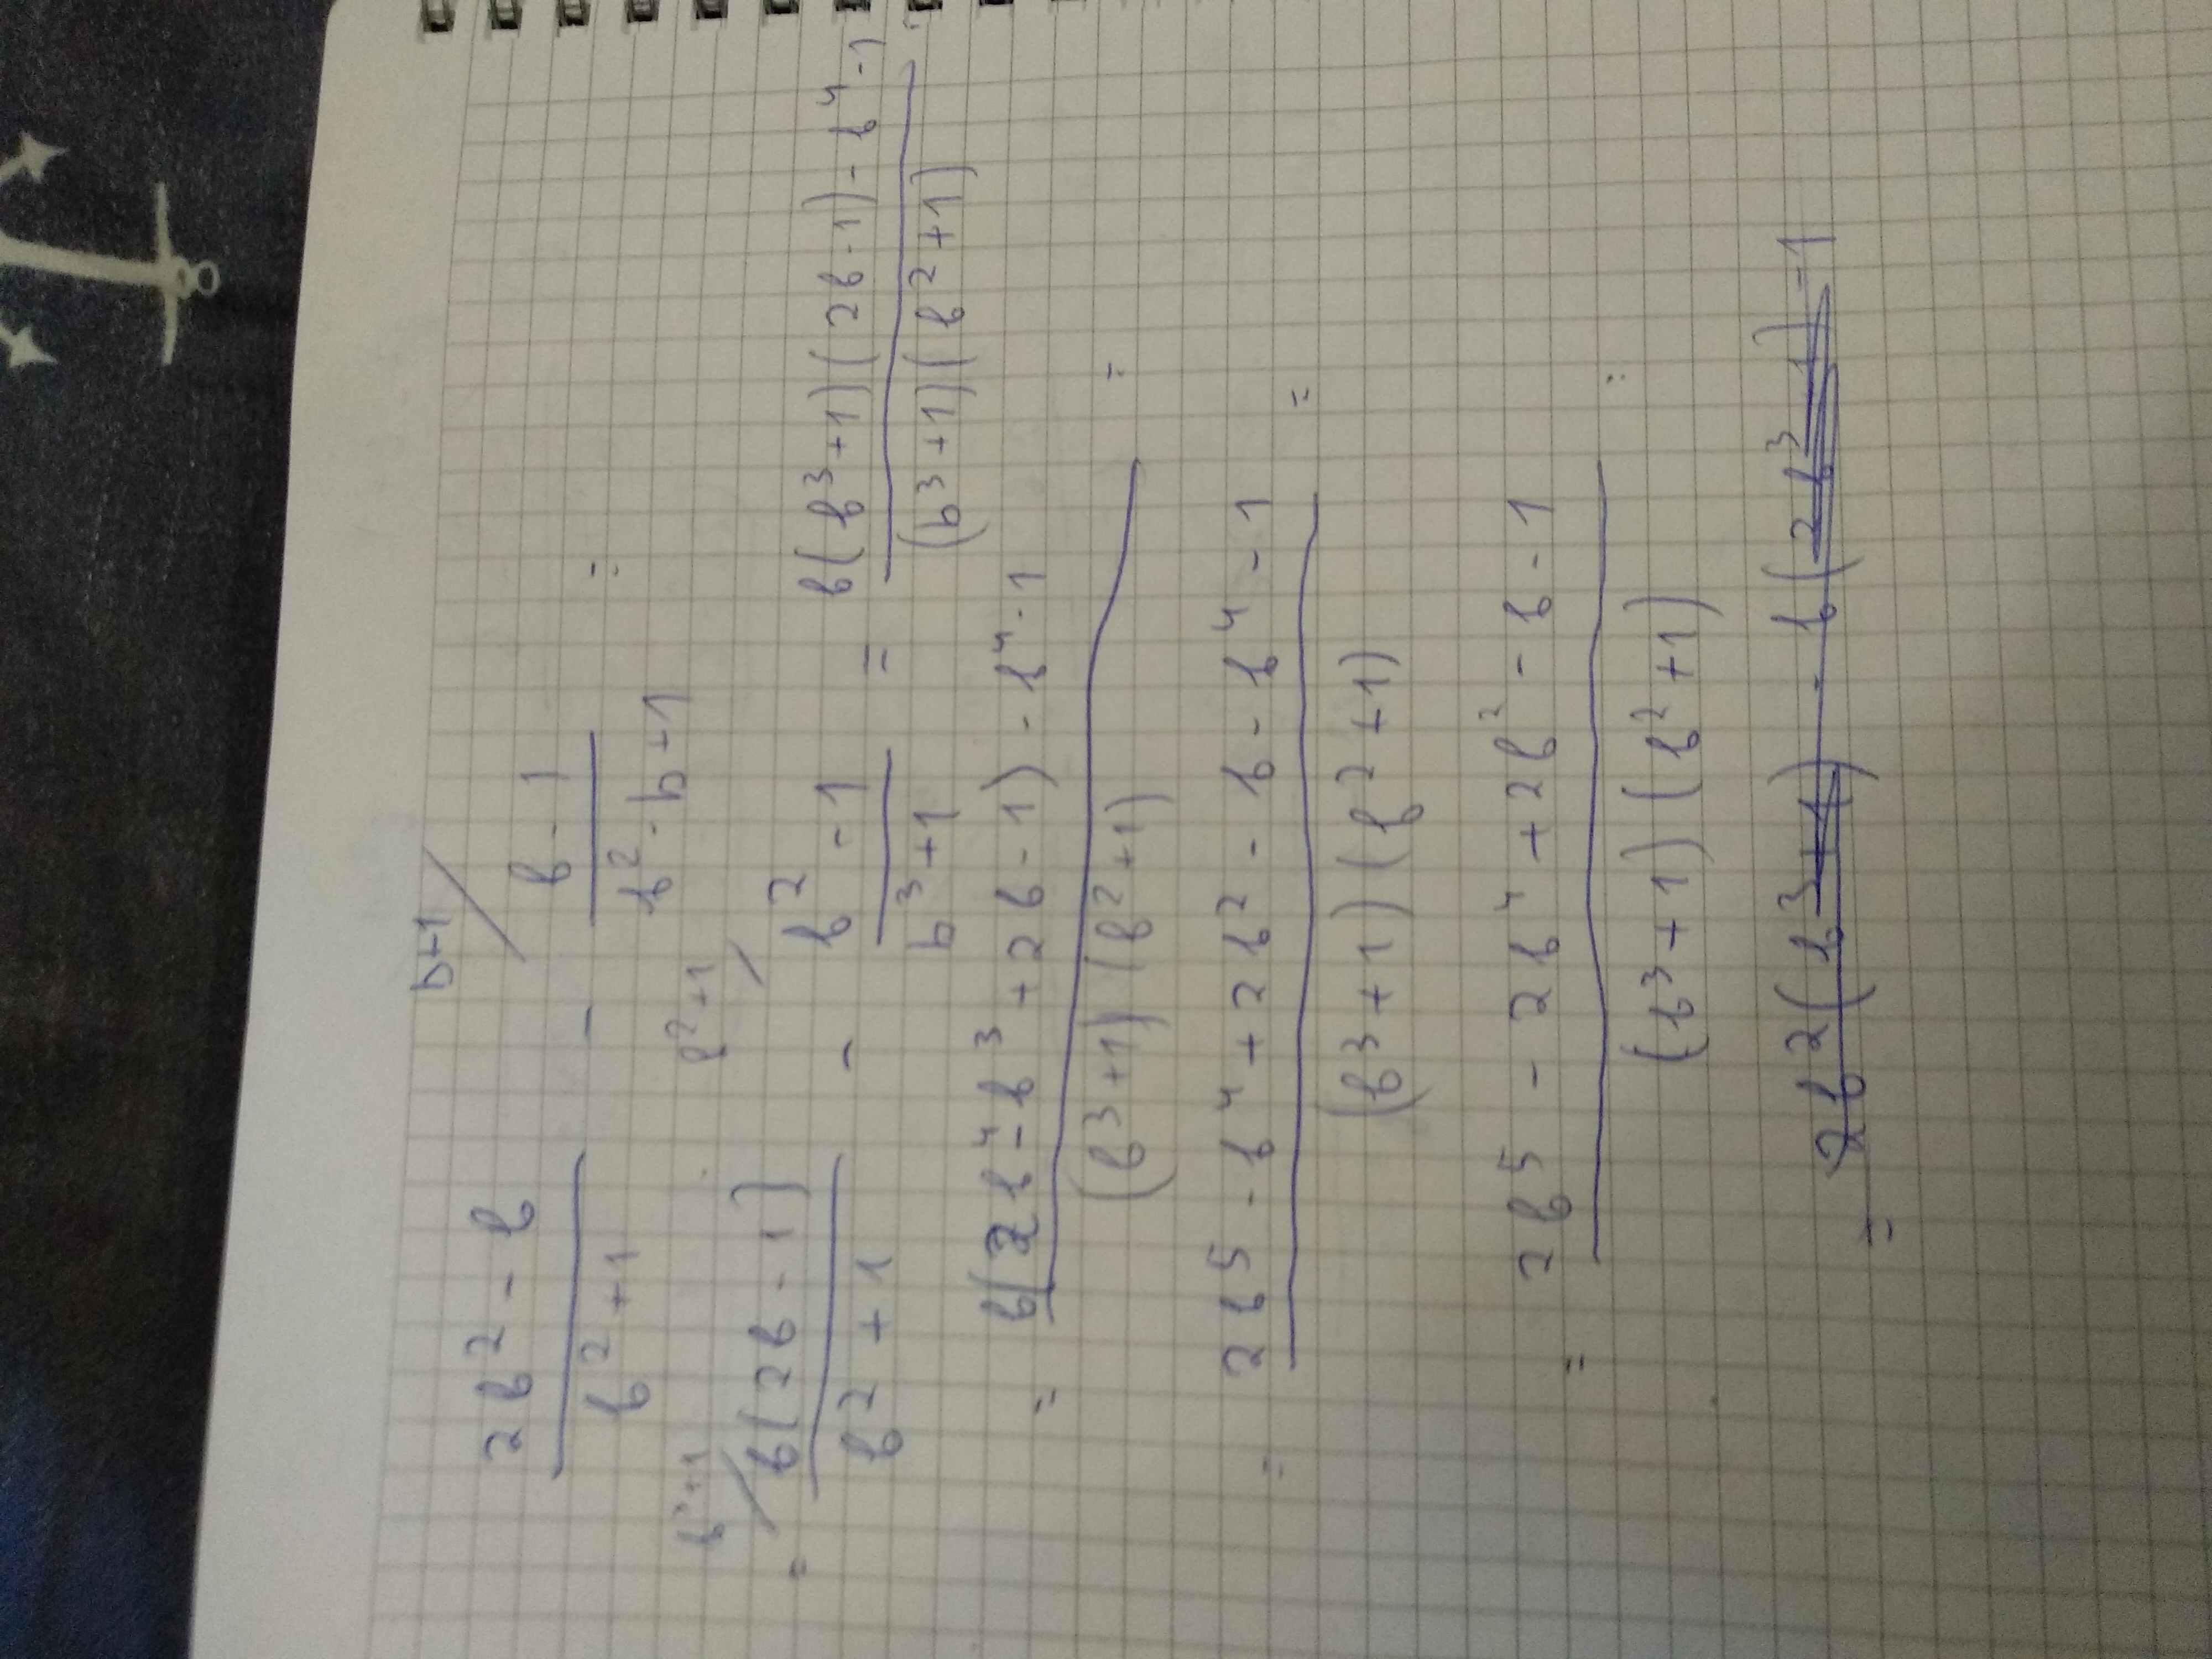 b+1
(2b² - b)/(b² + 1) - (b - 1)/(b² - b + 1) =
b³+1 b²+1
= b(2b - 1)/(b² + 1) - (b² - 1)/(b³ + 1) = (b(b³+1)(2b-1) - b⁴ - 1)/((b³+1)(b²+1))
= (b(2b⁴ - b³ + 2b - 1) - b⁴ - 1)/((b³+1)(b²+1)) =
= (2b⁵ - b⁴ + 2b² - b - b⁴ - 1)/((b³+1)(b²+1)) =
= (2b⁵ - 2b⁴ + 2b² - b - 1)/((b³+1)(b²+1)) =
= 2b²(b³+1) - b(2b³ 1) - 1